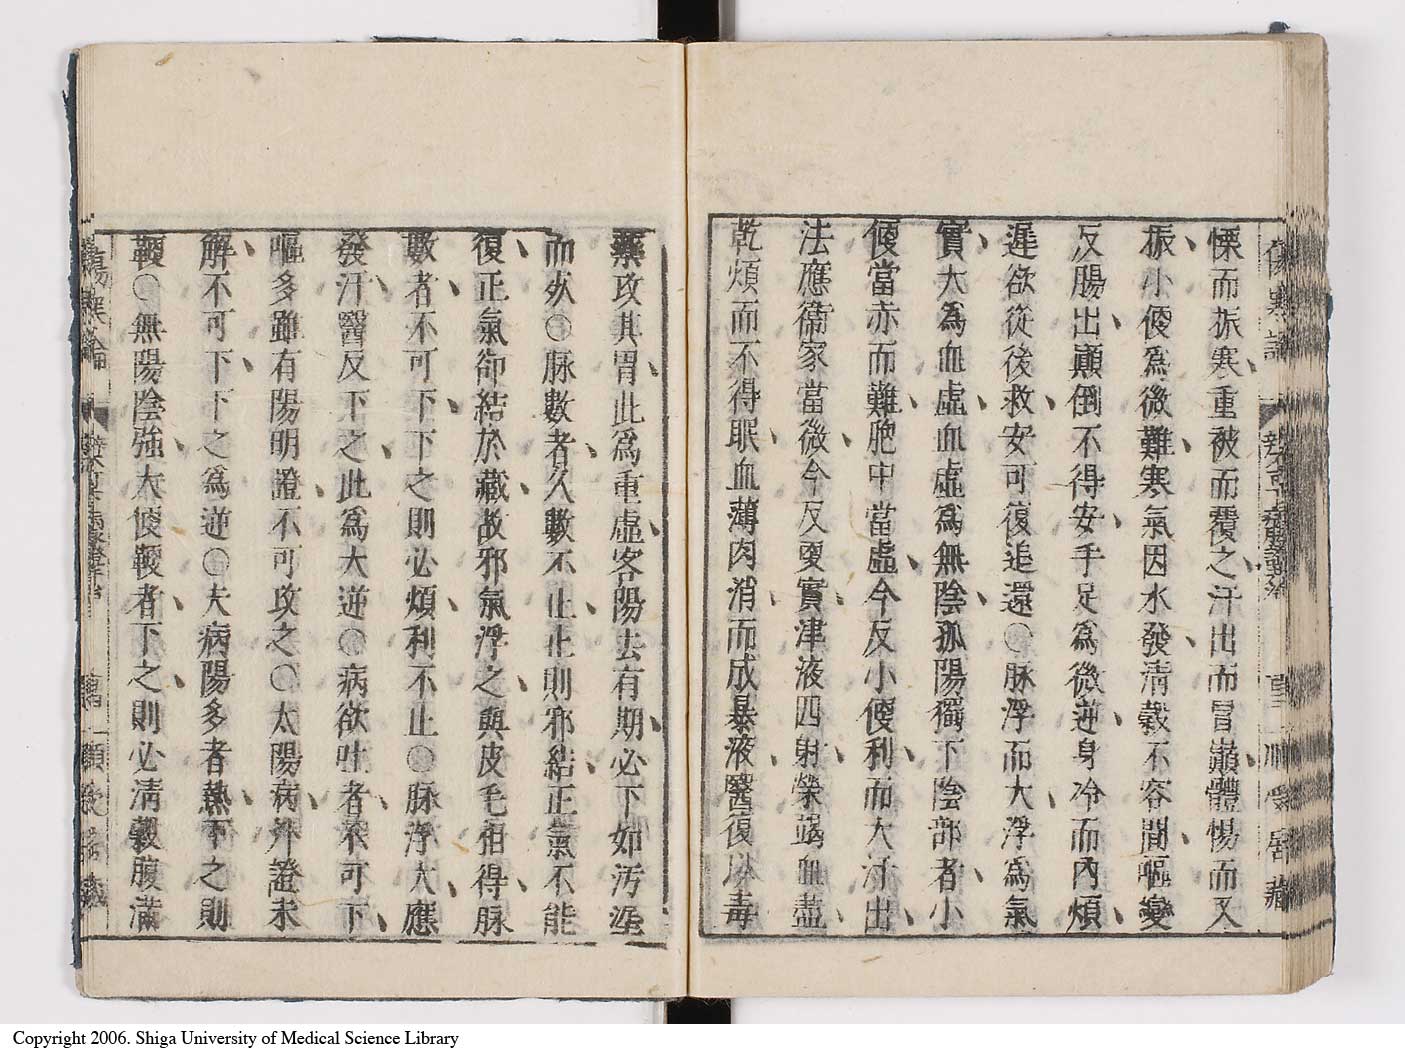 慄而振寒重被而覆之汗出而冒巔體惕而又
振小便為微難寒氣因水發淸穀不容間嘔變
反腸出顚倒不得安手足為微逆身冷而內煩
遲欲從後救安可復追還◯脉浮而大浮為氣
實大為血虛血虛為無陰孤陽獨下陰部者小
便當赤而難胞中當虛今反小便利而大汗出
法應衞家當微今反更實津液四射榮竭血盡
乾煩而不得眠血薄肉消而成暴液醫復以毒
藥攻其胃此為重虛客陽去有期必下如汚泥
而死◯脉數者久數不止止則邪結正氣不能
復正氣卻結於藏故邪氣浮之與皮毛相得脉
數者不可下下之則必煩利不止◯脉浮大應
發汗醫反下之此為大逆◯病欲吐者不可下
嘔多雖有陽明證不可攻之◯太陽病外證未
解不可下下之為逆◯夫病陽多者熱下之則
鞕◯無陽陰強大便鞕者下之則必淸穀腹滿
傷寒論
Copyright 2006. Shiga University of Medical Science Library